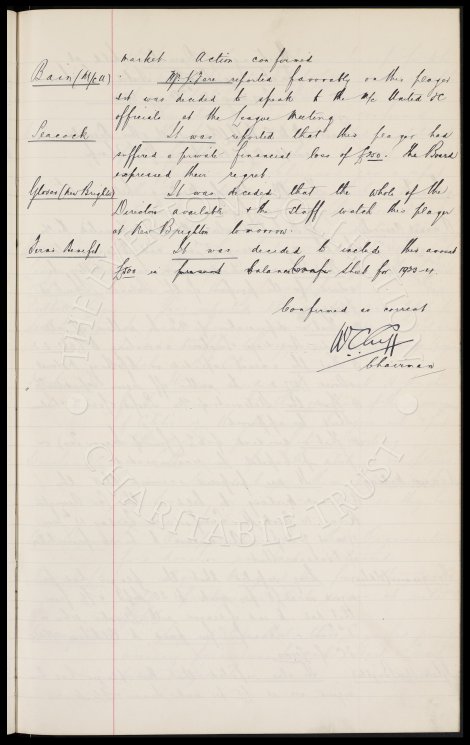 market. Action confirmed
Bain (M/c U) Mr. J. Fare reported favorably on this player
& it was decided to speak to the M/c United FC
officials at the League Meeting
Seacock It was reported that this player had
suffered a private financial loss of £500. The Board
expressed their regret
Glover (New Brighton) It was decided that the whole of the
Directors available & the staff watch this player
at New Brighton tomorrow.
Benefit It was decided to include this amount
£500 in balance sheet for 1923-4.
Confirmed as correct
W C Cuff
Chairman
THE
CHARITABLE TRUST